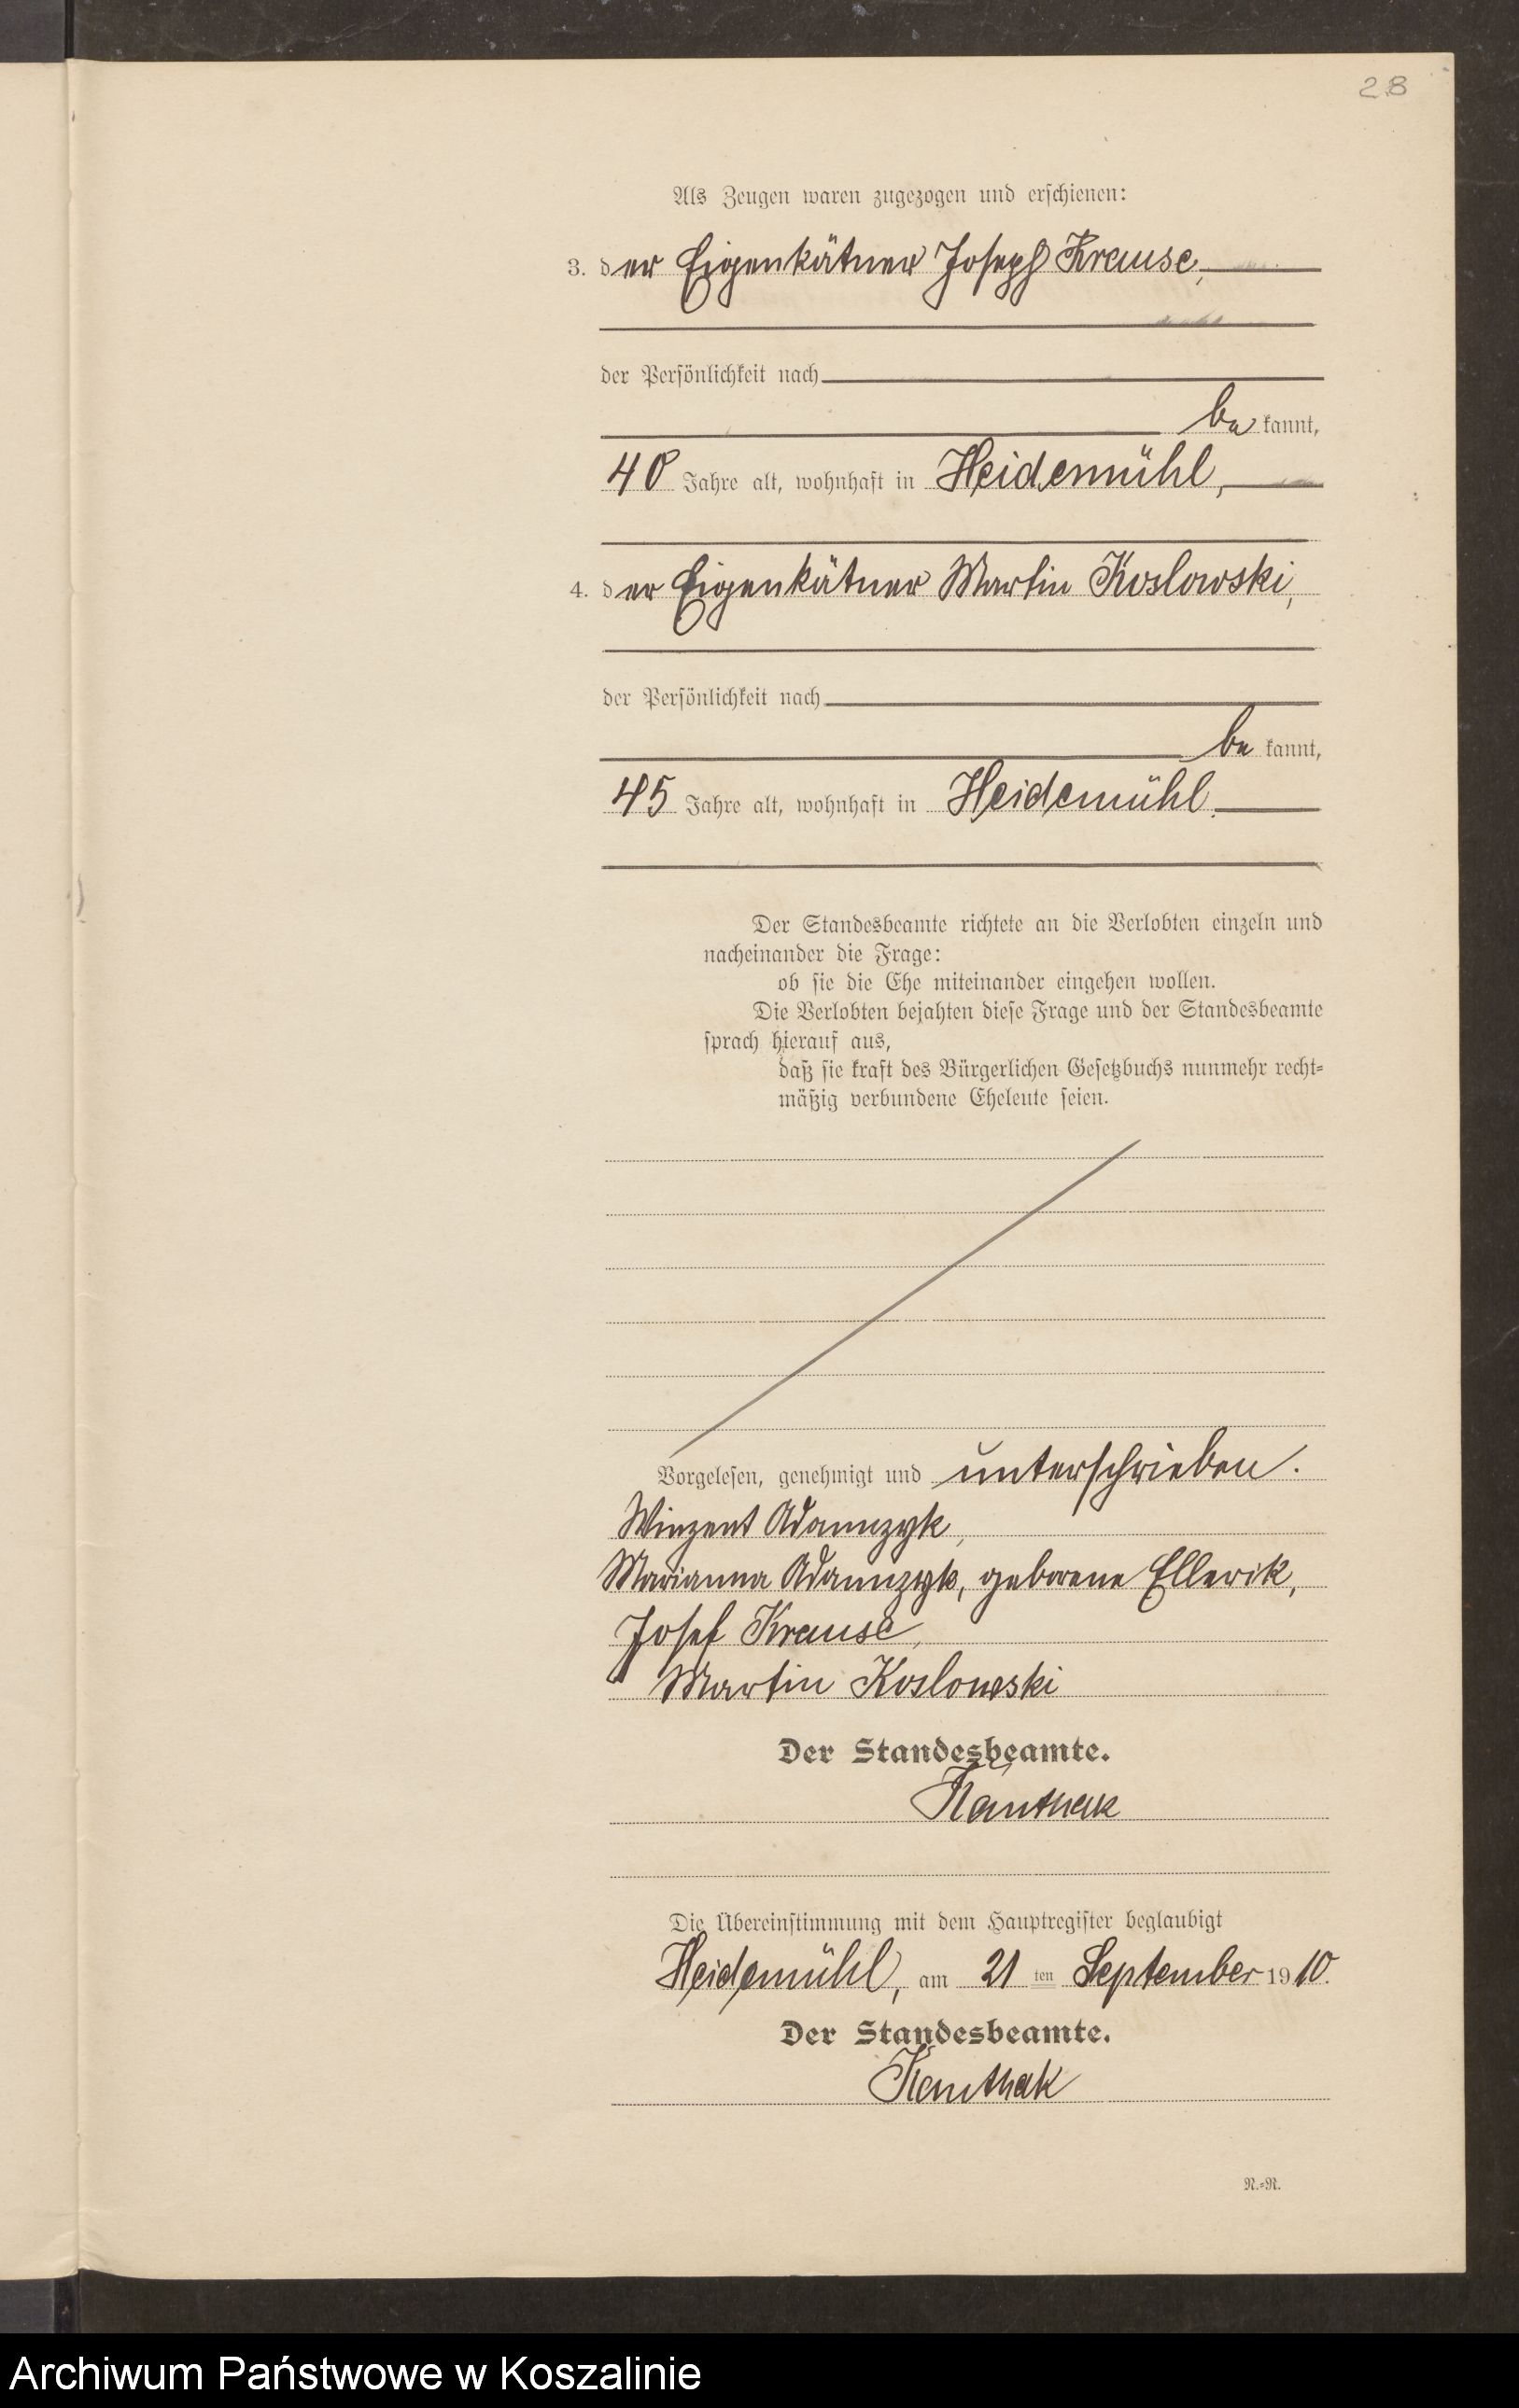 28
Als Zeugen waren zugezogen und erschienen:
3. der Eigenkätner Joseph Krause,
der Persönlichkeit nach
be kannt,
40 Jahre alt, wohnhaft in Heidemühl,
4. der Eigenkätner Martin Koslowski,
der Persönlichkeit nach
be kannt,
45 Jahre alt, wohnhaft in Heidemühl.
Der Standesbeamte richtete an die Verlobten einzeln und
nacheinander die Frage:
ob sie die Ehe miteinander eingehen wollen.
Die Verlobten bejahten diese Frage und der Standesbeamte
sprach hierauf aus,
daß sie kraft des Bürgerlichen Gesetzbuchs nunmehr recht-
mäßig verbundene Eheleute seien.
Vorgelesen, genehmigt und unterschrieben.
Winzent Adamczyk,
Marianna Adamczyk, geborene Ellerik,
Josef Krause,
Martin Koslowski
Der Standesbeamte.
Die Übereinstimmung mit dem Hauptregister beglaubigt
Heidemühl, am 21 ten September 1910.
Der Standesbeamte.
R.-R.
Archiwum Państwowe w Koszalinie